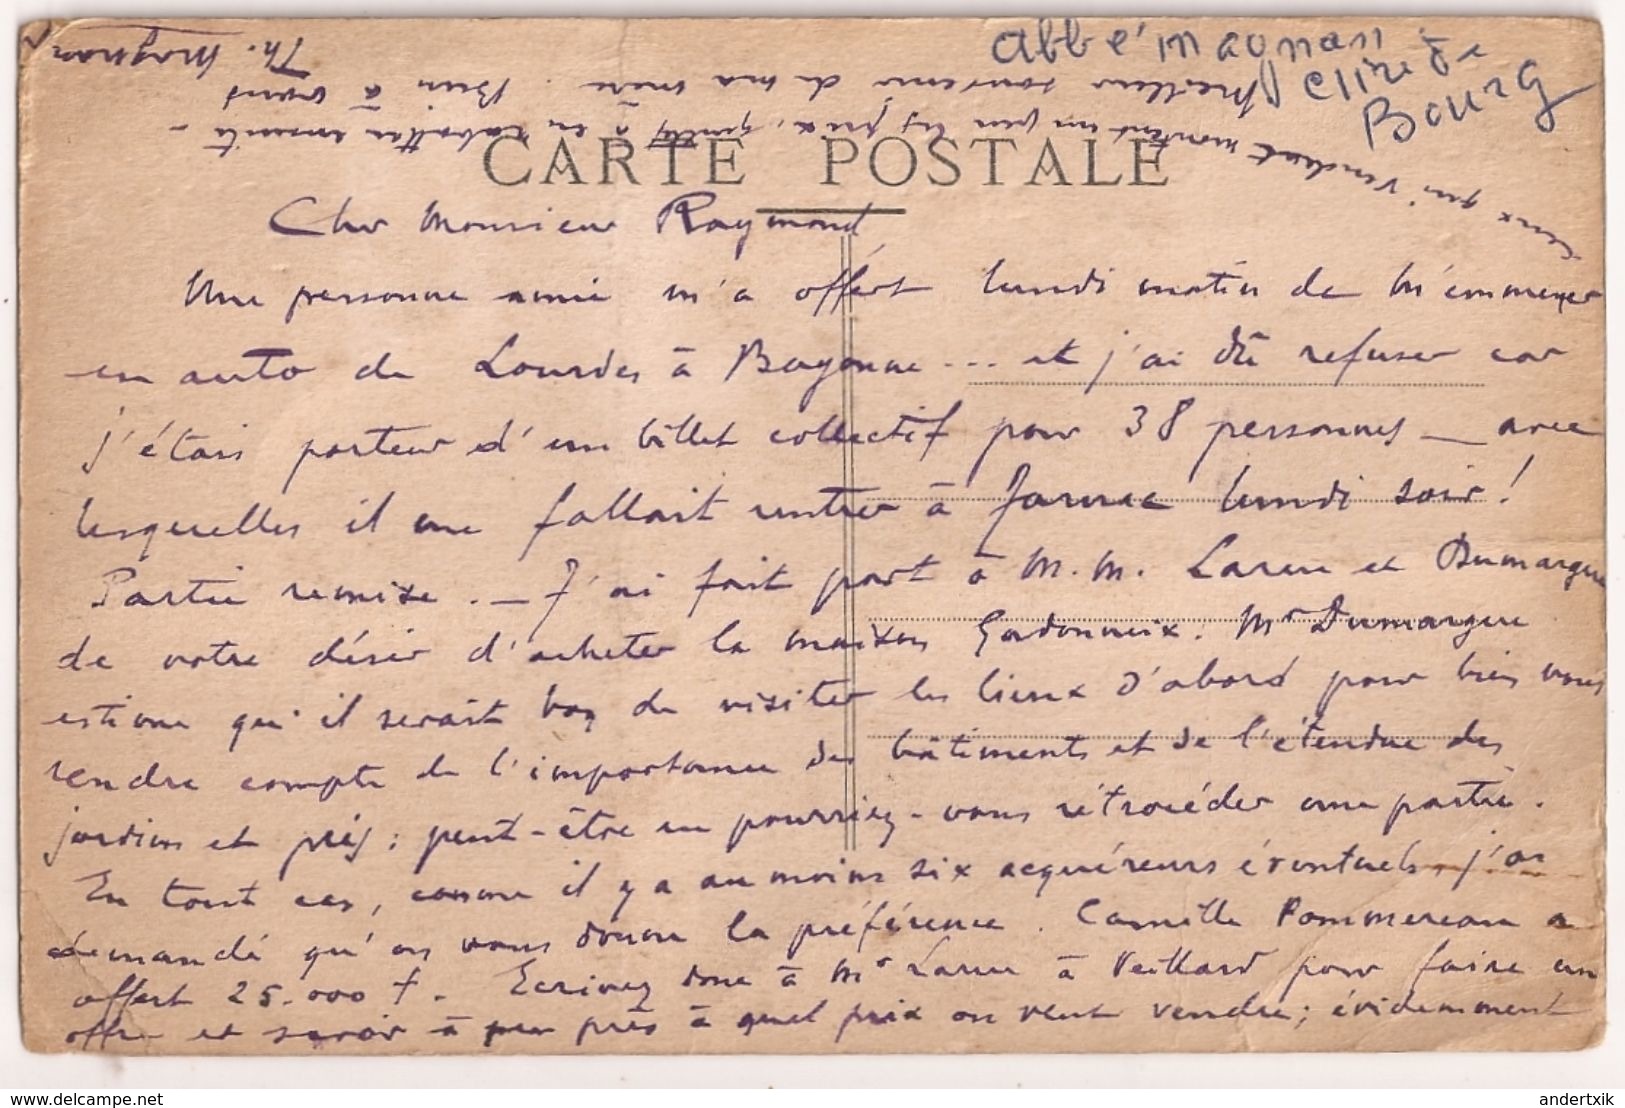 abbé magnan
curé de
Bourg
CARTE POSTALE
Cher Monsieur Raymond
Une personne amie m'a offert lundi matin de m'emmener
en auto de Lourdes à Bayonne ... et j'ai dû refuser car
j'étais porteur d'un billet collectif pour 38 personnes — avec
lesquelles il me fallait rentrer à Jarnac lundi soir !
Partie remise . — J'ai fait part à M. M. Larue et Dumargue
de votre désir d'acheter la maison Gadonneix. Mr Dumargue
estime qu'il serait bon de visiter les lieux d'abord pour bien vous
rendre compte de l'importance des bâtiments et de l'étendue des
jardins et prés ; peut-être en pourriez-vous rétrocéder une partie.
En tout cas, comme il y a au moins six acquéreurs éventuels, j'ai
demandé qu'on vous donne la préférence. Camille Pommereau a
offert 25.000 f. Ecrivez donc à Mr Larue à Veillard pour faire un
offre et savoir à peu près à quel prix on veut vendre ; évidemment
ceux qui vendent montent un peu les prix, quittes à en rabattre ensuite -
Meilleur souvenir de ma mère. Bien à vous
Th. Magnan
delcampe.net
andertxik